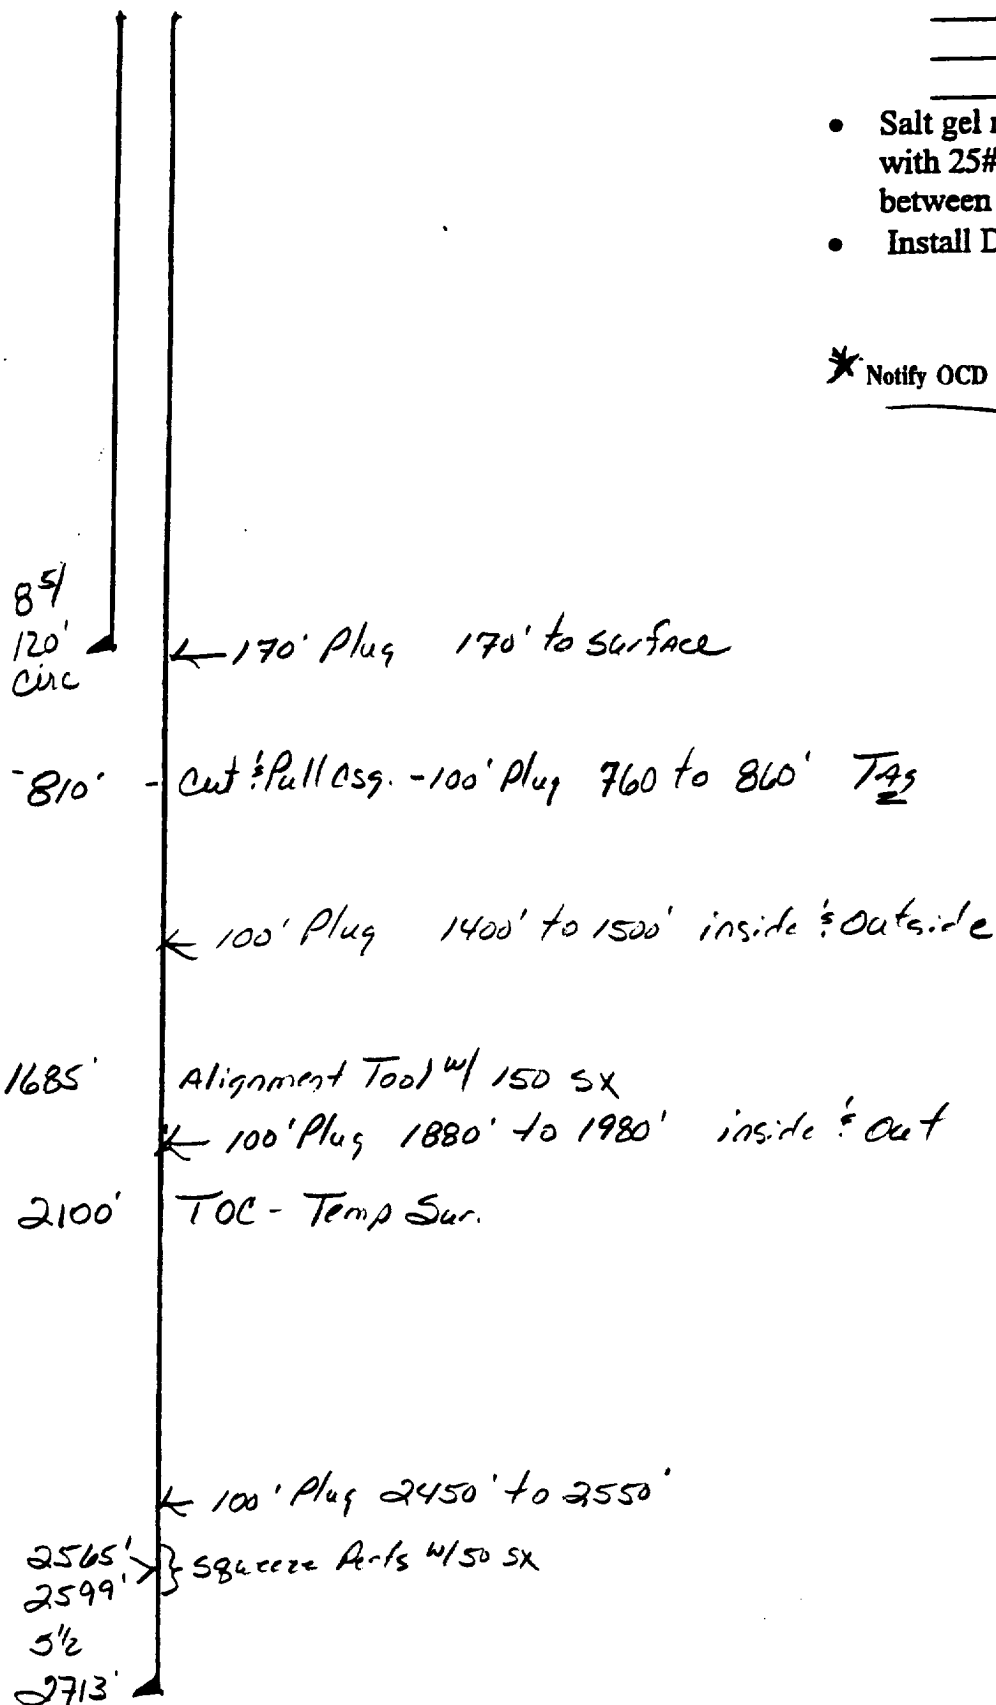 • Salt gel
with 25#
between
• Install D
* Notify OCD
8 5/
120'
Circ
← 170' Plug 170' to Surface
-810' - Cut & Pull Csg. - 100' Plug 760 to 860' Tag
← 100' Plug 1400' to 1500' inside & Outside
1685' Alignment Tool w/ 150 sx
← 100' Plug 1880' to 1980' inside & Out
2100' TOC - Temp Sur.
← 100' Plug 2450' to 2550'
2565'
2599' } Squeeze Perfs w/50 sx
5 1/2
2713'